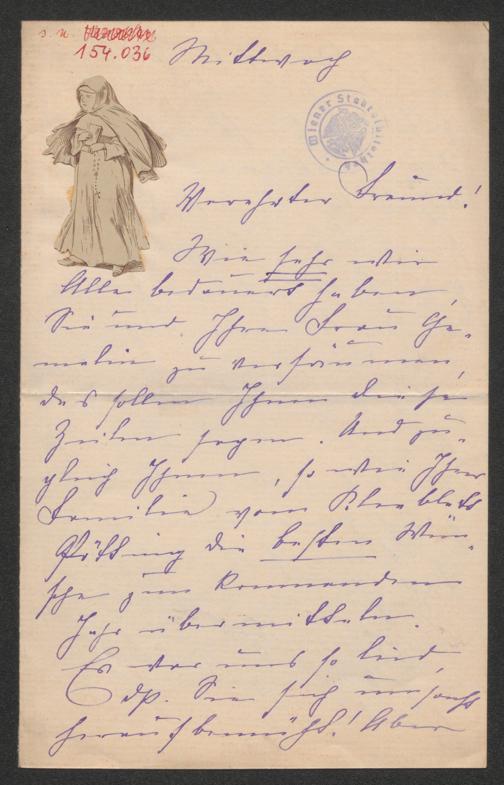 154.036
Mittwoch
Wiener Stadtbibliothek
Verehrter Freund!
Wie sehr wir
Alle bedauert haben,
Sie und Ihre Frau Ge-
malin zu versäumen,
das sollen Ihnen diese
Zeilen sagen. Und zu-
gleich Ihnen, so wie Ihrer
Familie vom Kleeblatt
Pötting die besten Wün-
sche zum kommenden
Jahr übermitteln.
Es war uns so leid,
dß. Sie sich umsonst
heraufbemüht! Aber